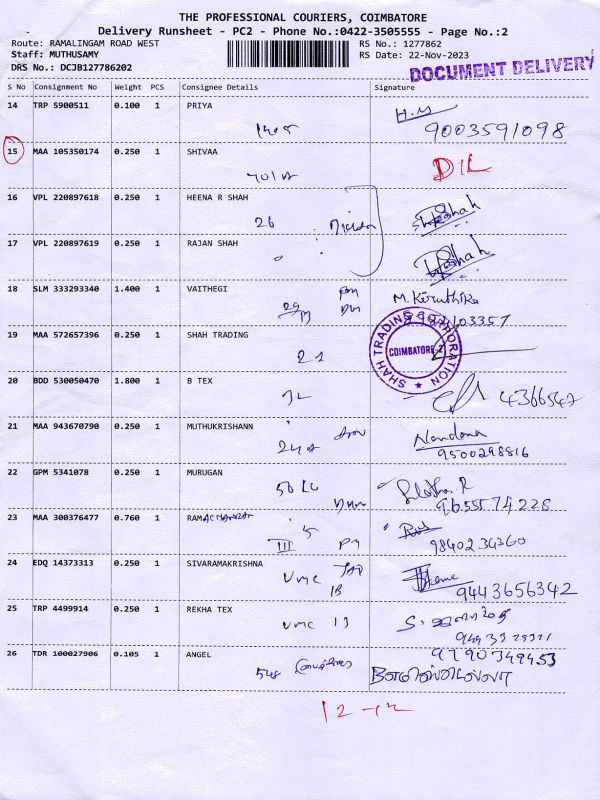 THE PROFESSIONAL COURIERS, COIMBATORE
Delivery Runsheet - PC2 - Phone No.:0422-3505555 - Page No.:2
Route: RAMALINGAM ROAD WEST
RS No.: 1277862
Staff: MUTHUSAMY
RS Date: 22-Nov-2023
DRS No.: DCJB127786202
DOCUMENT DELIVERY
S No Consignment No Weight PCS Consignee Details Signature
14 TRP 5900511 0.100 1 PRIYA
9003591098
15 MAA 105350174 0.250 1 SHIVAA
701A
16 VPL 220897618 0.250 1 HEENA R SHAH
26
17 VPL 220897619 0.250 1 RAJAN SHAH
18 SLM 333293340 1.400 1 VAITHEGI
M. Kiruthika
19 MAA 572657396 0.250 1 SHAH TRADING
21
SHAH TRADING CORPORATION
COIMBATORE-2
20 BDD 530050470 1.800 1 B TEX
32
4366547
21 MAA 943670790 0.250 1 MUTHUKRISHANN
Nandana
9500298816
22 GPM 5341078 0.250 1 MURUGAN
50
9655574228
23 MAA 300376477 0.760 1 RAMACHANDRAN
5
III
9840234360
24 EDQ 14373313 0.250 1 SIVARAMAKRISHNA
VMC
9443656342
25 TRP 4499914 0.250 1 REKHA TEX
VMC 13
26 TDR 100027906 0.105 1 ANGEL
9790349453
548
12-12